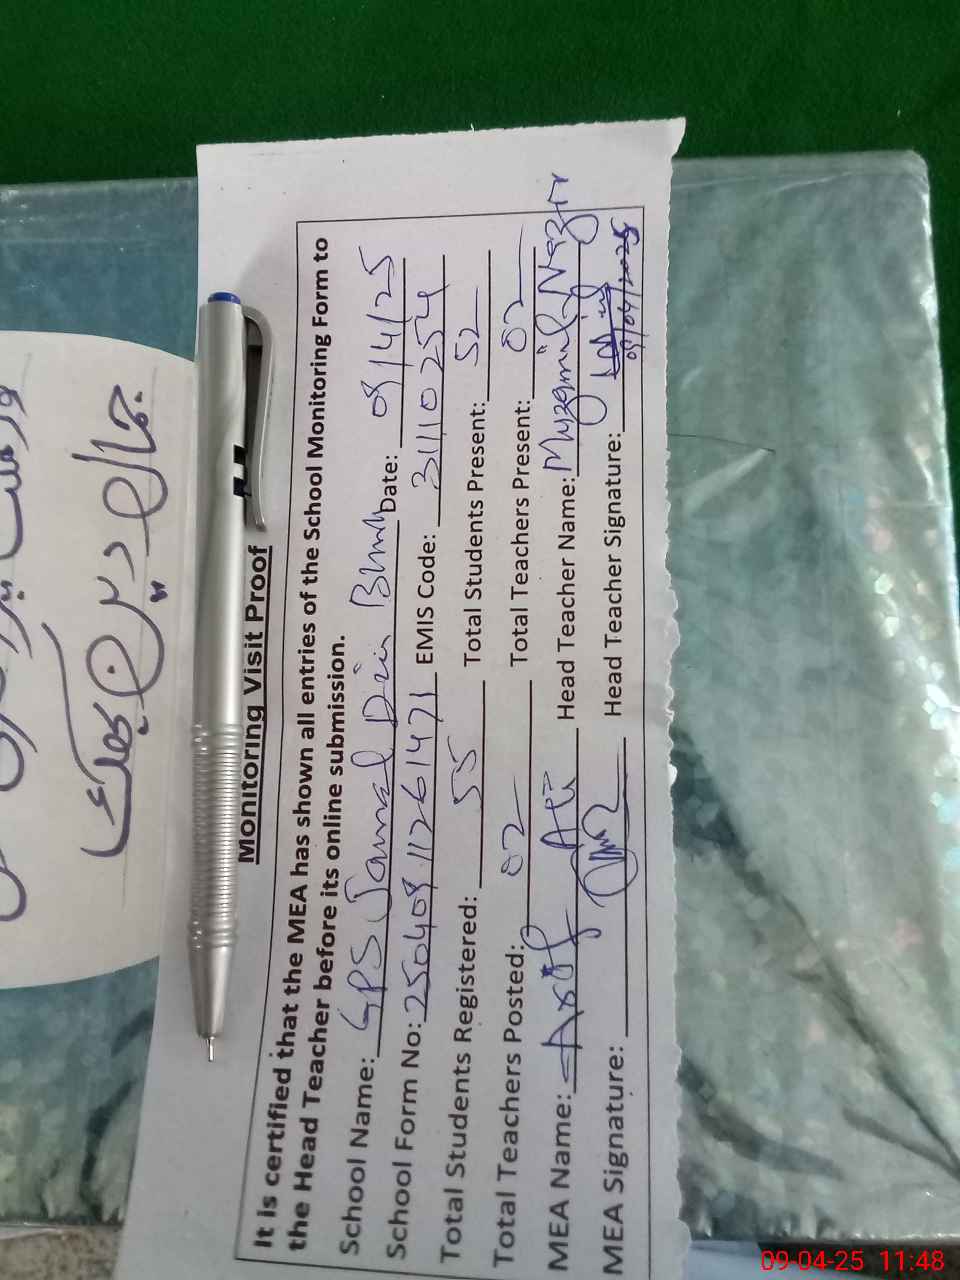 Monitoring Visit Proof
It is certified that the MEA has shown all entries of the School Monitoring Form to
the Head Teacher before its online submission.
School Name: GPS Jamal Din Date: 09/4/25
School Form No: EMIS Code: 31110254
Total Students Registered: 55 Total Students Present: 52
Total Teachers Posted: 02 Total Teachers Present: 02
MEA Name: Ali Head Teacher Name: Muzammil Nazir
MEA Signature: Head Teacher Signature:
09/04/2025
جمال دین
09-04-25 11:48